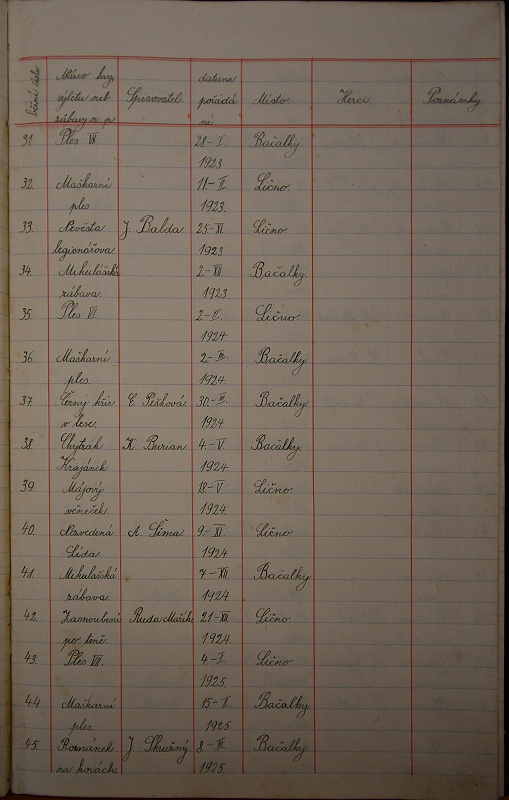 běžné číslo
Název hry, výletu neb zábavy n. p. Spisovatel datum pořádání Místo Herci Poznámky
31 Ples VII. 28-I. Bačalky
1923
32. Maškarní 11-II. Lično.
ples 1923.
33. Nevěsta J. Balda 25-XI Lično
legionářova 1923
34. Mikulášská 2-XII Bačalky.
zábava 1923
35. Ples VI. 2-II. Lično.
1924
36 Maškarní 2-III. Bačalky.
ples. 1924.
37. Černý kříž E. Pešková 30.-III. Bačalky.
v lese. 1924
38. Chytrák K. Burian 4.-V. Bačalky.
Krajánek 1924
39. Májový 18-V Lično.
věneček. 1924.
40. Nezvedená A. Šíma 9-XI. Lično.
Lída. 1924
41. Mikulašská 7-XII Bačalky
zábava. 1924
42. Zasnoubení Ruda Mařík 21-XII. Lično.
po tmě. 1924.
43. Ples VII. 4.-I. Lično
1925.
44 Maškarní 15-II. Bačalky.
ples. 1925.
45. Románek J. Skružný. 8-III. Bačalky
na horách. 1925.